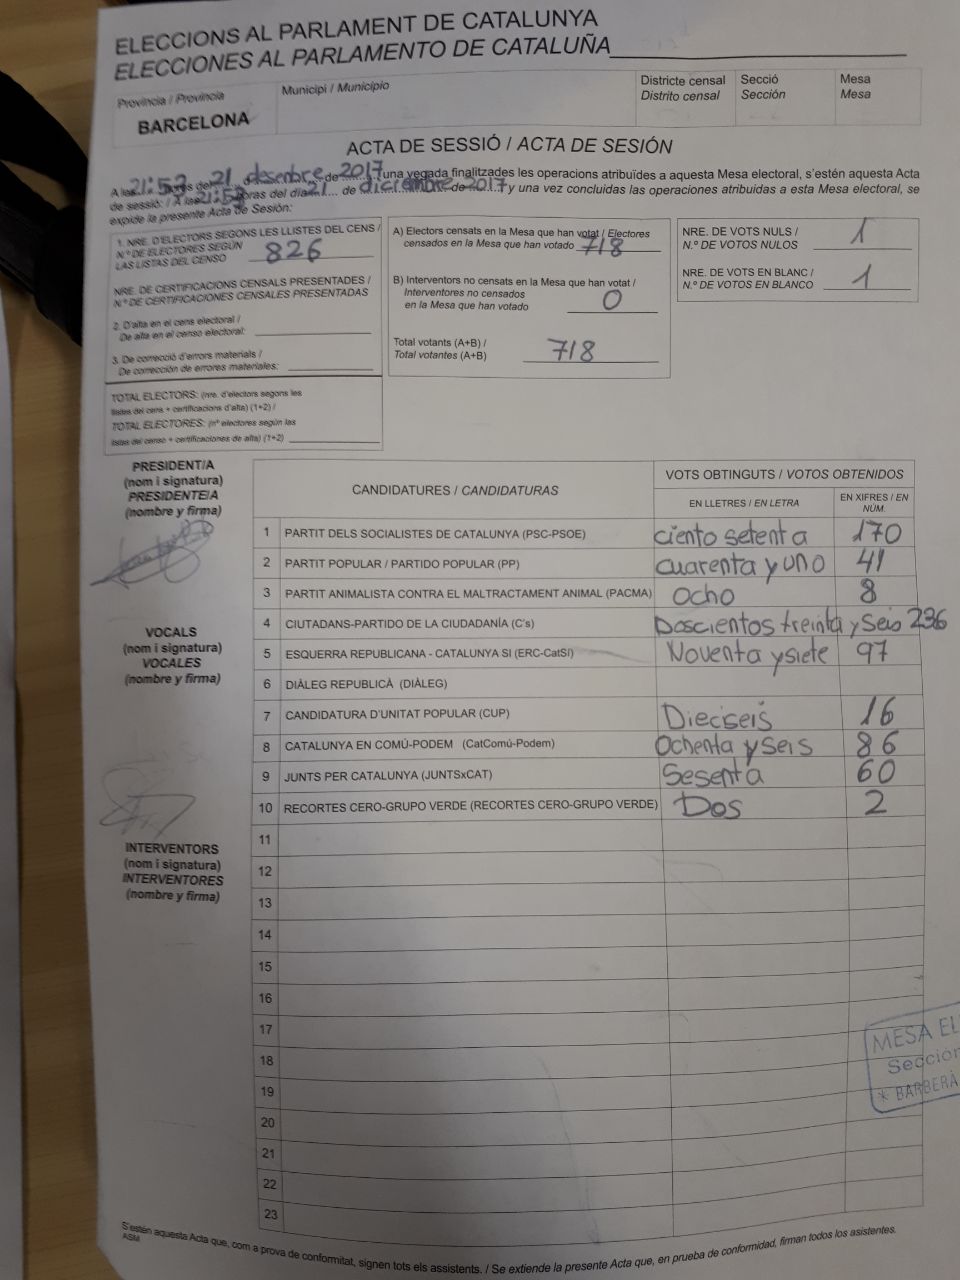 ELECCIONS AL PARLAMENT DE CATALUNYA
ELECCIONES AL PARLAMENTO DE CATALUÑA
Província / Provincia
BARCELONA
Municipi / Municipio
Districte censal
Distrito censal
Secció
Sección
Mesa
Mesa
ACTA DE SESSIÓ / ACTA DE SESIÓN
A les 21:52 hores del 21 desembre de 2017 una vegada finalitzades les operacions atribuïdes a aquesta Mesa electoral, s'estén aquesta Acta
de sessió: / A las 21:52 horas del día 21 de diciembre de 2017 y una vez concluidas las operaciones atribuidas a esta Mesa electoral, se
expide la presente Acta de Sesión:
1. NRE. D'ELECTORS SEGONS LES LLISTES DEL CENS /
N.º DE ELECTORES SEGÚN
LAS LISTAS DEL CENSO 826
NRE. DE CERTIFICACIONS CENSALS PRESENTADES /
N.º DE CERTIFICACIONES CENSALES PRESENTADAS
2. D'alta en el cens electoral /
De alta en el censo electoral:
3. De correcció d'errors materials /
De corrección de errores materiales:
TOTAL ELECTORS: (nre. d'electors segons les
llistes del cens + certificacions d'alta) (1+2) /
TOTAL ELECTORES: (nº electores según las
listas del censo + certificaciones de alta) (1+2)
A) Electors censats en la Mesa que han votat / Electores
censados en la Mesa que han votado 718
B) Interventors no censats en la Mesa que han votat /
Interventores no censados
en la Mesa que han votado 0
Total votants (A+B) /
Total votantes (A+B) 718
NRE. DE VOTS NULS /
N.º DE VOTOS NULOS 1
NRE. DE VOTS EN BLANC /
N.º DE VOTOS EN BLANCO 1
PRESIDENT/A
(nom i signatura)
PRESIDENTE/A
(nombre y firma)
VOCALS
(nom i signatura)
VOCALES
(nombre y firma)
INTERVENTORS
(nom i signatura)
INTERVENTORES
(nombre y firma)
CANDIDATURES / CANDIDATURAS
VOTS OBTINGUTS / VOTOS OBTENIDOS
EN LLETRES / EN LETRA
EN XIFRES / EN
NÚM.
1 PARTIT DELS SOCIALISTES DE CATALUNYA (PSC-PSOE) ciento setenta 170
2 PARTIT POPULAR / PARTIDO POPULAR (PP) cuarenta y uno 41
3 PARTIT ANIMALISTA CONTRA EL MALTRACTAMENT ANIMAL (PACMA) ocho 8
4 CIUTADANS-PARTIDO DE LA CIUDADANÍA (C's) Doscientos treinta y seis 236
5 ESQUERRA REPUBLICANA - CATALUNYA SI (ERC-CatSI) Noventa y siete 97
6 DIÀLEG REPUBLICÀ (DIÀLEG)
7 CANDIDATURA D'UNITAT POPULAR (CUP) Dieciseis 16
8 CATALUNYA EN COMÚ-PODEM (CatComú-Podem) Ochenta y seis 86
9 JUNTS PER CATALUNYA (JUNTSxCAT) Sesenta 60
10 RECORTES CERO-GRUPO VERDE (RECORTES CERO-GRUPO VERDE) Dos 2
11
12
13
14
15
16
17
18
19
20
21
22
23
MESA EL
Sección
* BARBERÀ
S'estén aquesta Acta que, com a prova de conformitat, signen tots els assistents. / Se extiende la presente Acta que, en prueba de conformidad, firman todos los asistentes.
ASM